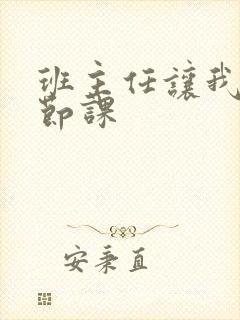 班主任讓我
節課
安秉直